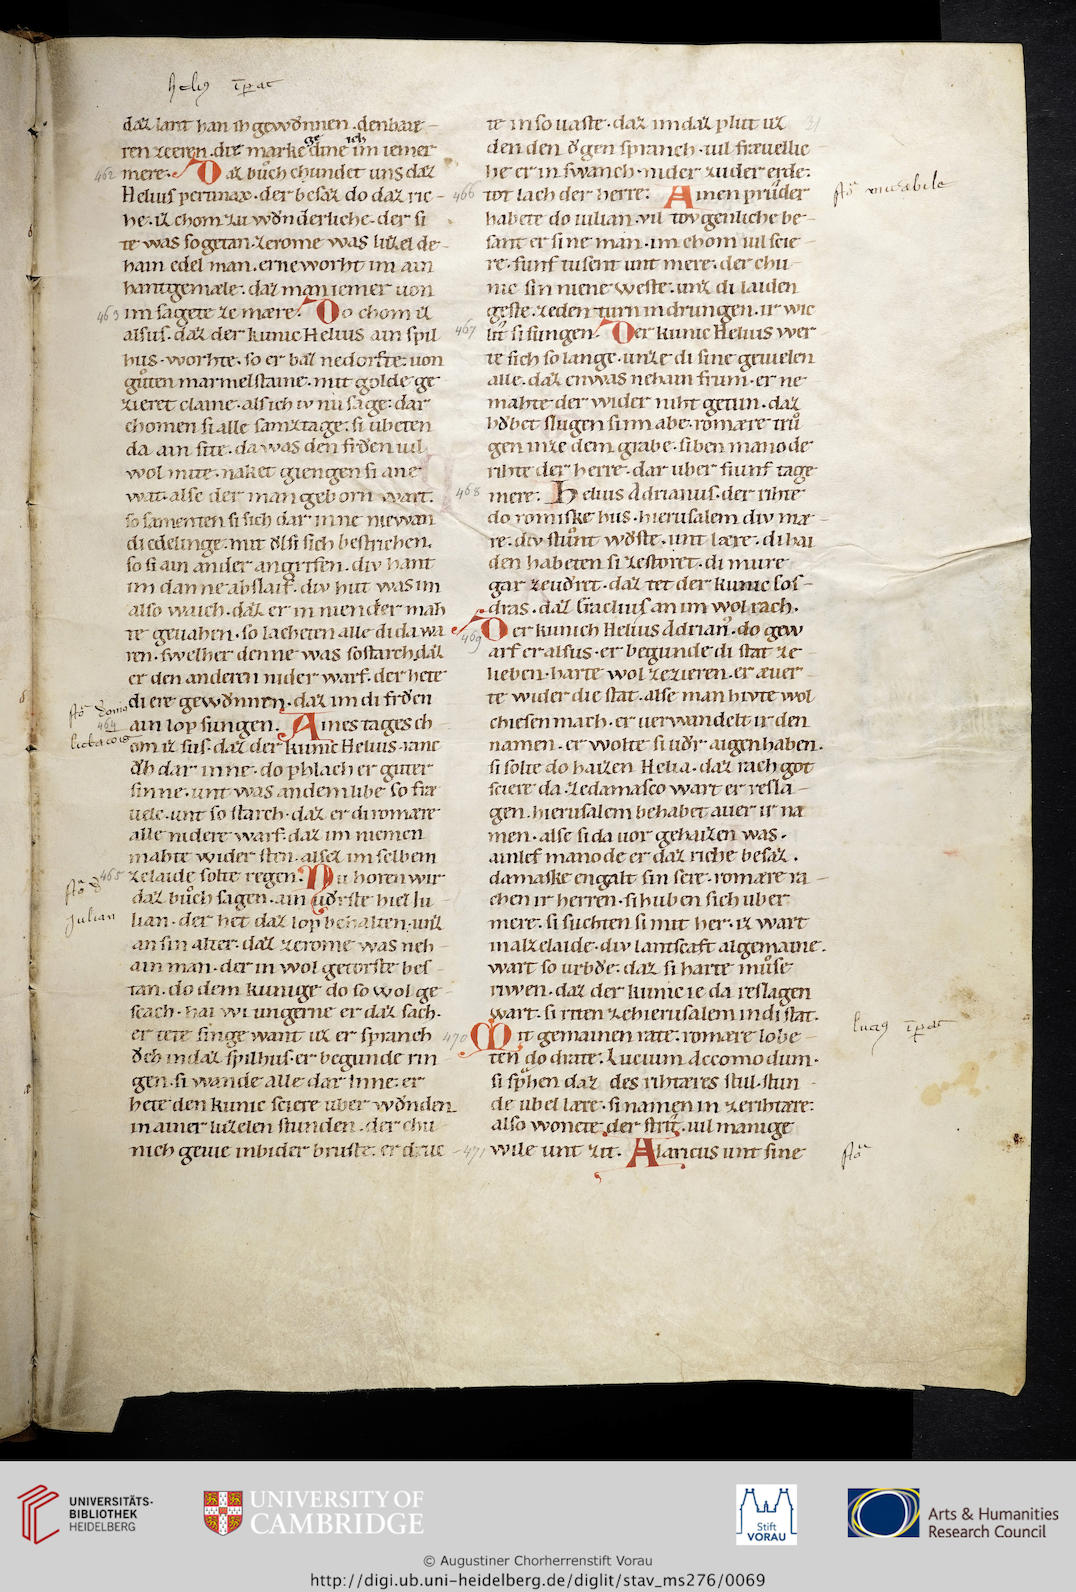 daz lant han ih gewunnen. den baie
ren zeeren. die marke gedinge ich im iemer
mere. Daz buͦch chundet uns daz
Helius pertinax. der besaz do daz ric
he. iz chom zu wnderliche. der si
te was so getan. zerome was luzel de
hain edel man. er ne worht im ain
hantgemæle. daz man iemer uon
im sagete ze mære. Do chom iz
alsus. daz der kunic Helius ain spil
hus. worhte. so er baz ne dorfte. uon
guͦten marmelstaine. mit golde ge
zieret claine. als ich iv nu sage. dar
chomen si alle samztage. si uͤbeten
da ain site. da was den frowen uil
wol mite. naket giengen si ane
wat. alse der man geborn wart.
so samenten si sich dar inne niewan
di edelinge. mit olsi sich bestrichen.
so si ain ander angriffen. div hant
im danne abslaif. div hut was im
also waich. daz er in niender mah
te geuahen. so lacheten alle di da wa
ren. swelher denne was so starch daz
er den anderen nider warf. der hete
di ere gewnnen. daz im di frowen
ain lop sungen. Aines tages ch
om iz sus. daz der kunic Helius. ranc
ovh dar inne. do phlach er guter
sinne. unt was an dem libe so fræ
uele. unt so starch. daz er di romære
alle nidere warf. daz im niemen
mahte wider sten. alsez im selbem
zelaide solte regen. Nu horen wir
daz buͦch sagen. ain furste hiez Iu
lian. der het daz lop behalten. unz
an sin alter. daz zerome was neh
ain man. der in wol getorste bes
tan. do dem kunige do so wol ge
scach. hai wi ungerne er daz sach.
er tete singe want uz er spranch
ovch in daz spilhus. er begunde rin
gen. si wande alle dar Inne. er
hete den kunic sciere uber wnden
in ainer luzelen stunden. der chu
nich geuie in bider bruste. er druc
te in so uaste. daz im daz plut uz
den den ovgen spranch. uil fræuellic
he er in swanch. nider zu der erde.
tot lach der herre. Ainen pruͦder
habete do iulian. vil tovgenliche be
sant er sine man. im chom uil scie
re. funf tusent unt mere. der chu
nic sin niene weste. unz di laiden
geste. zeden turn in drungen. ir wic
liet si sungen. Der kunic Helius wer
te sich so lange. unze di sine geuielen
alle. daz enwas nehain frum. er ne
mahte der wider niht getun. daz
hovbet slugen si im abe. romære truͦ
gen inze dem grabe. siben manode
rihte der herre. dar uber fiunf tage
mere. Helius Adrianus. der rihte
do romiske hus. hierusalem div mæ
re. div stuͦnt wste. unt lære. di hai
den habeten si zestoret. di mure
gar zeuuret. daz tet der kunic Cos
dras. daz Eraclius an im wol rach.
Der kunich Helius Adrian. do gew
arf er alsus. er begunde di stat ze
lieben. harte wol zezieren. er æuer
te wider die stat. alse man hivte wol
chiesen mach. er uerwandelt ir den
namen. er wolte si uur aigen haben.
si solte do haizen Helia. daz rach got
sciere da. ze damasco wart er resla
gen. hierusalem behabet auer ir na
men. alse si da uor gehaizen was.
ainlef manode er daz riche besaz.
damaske engalt sin sere. romære ra
chen ir herren. si huben sich uber
mere. si suchten si mit her. iz wart
in alze laide. div lantscaft algemaine.
wart so urbowe. daz si harte muͦse
riwen. daz der kunic ie da reslagen
wart. si riten ze hierusalem in di stat.
Mit gemainen rate. romære lobe
ten do drate. Lucium Accomodum.
si sprachen daz des rihtæres stul. stun
de ubel lære. si namen in zerihtære.
also wonete der strit. uil manige
wile unt zit. Alaricus unt sine
462
463
464
465
466
467
468
469
470
471
UNIVERSITÄTS-
BIBLIOTHEK
HEIDELBERG
UNIVERSITY OF
CAMBRIDGE
Stift
VORAU
Arts & Humanities
Research Council
© Augustiner Chorherrenstift Vorau
http://digi.ub.uni-heidelberg.de/diglit/stav_ms276/0069